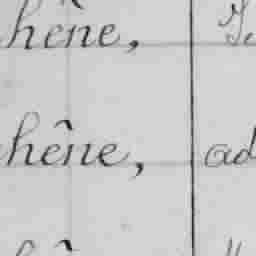 hêne,
hêne, ad